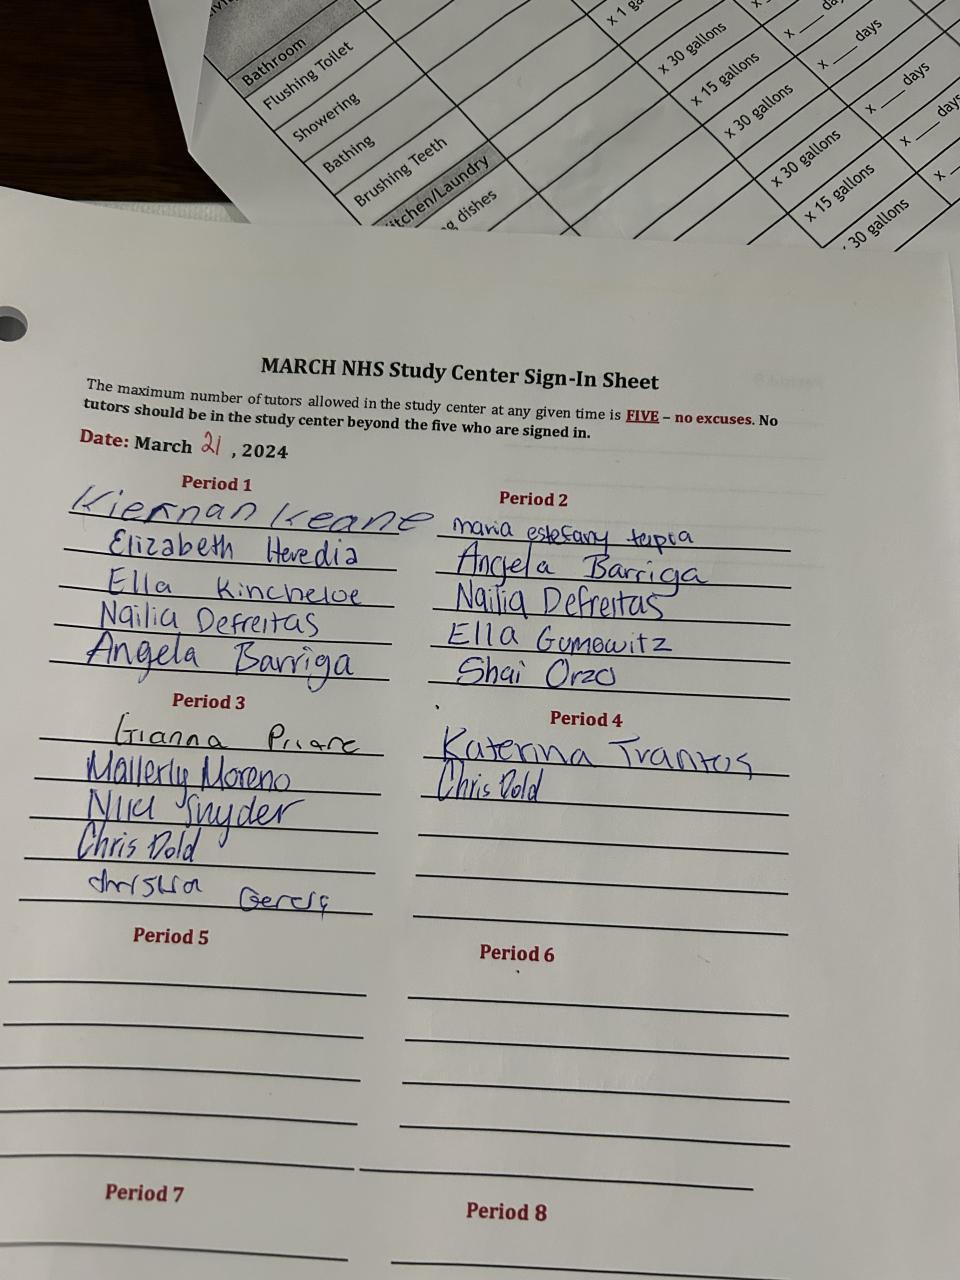 Bathroom
Flushing Toilet
Showering
Bathing
Brushing Teeth
itchen/Laundry
g dishes
x 1 ga
x 30 gallons
x 15 gallons
x 30 gallons
x 30 gallons
x 15 gallons
30 gallons
x ___ da
x ___ days
x ___ days
x ___ days
x
MARCH NHS Study Center Sign-In Sheet
The maximum number of tutors allowed in the study center at any given time is FIVE – no excuses. No
tutors should be in the study center beyond the five who are signed in.
Date: March 21, 2024
Period 1
Kiernan Keane
Elizabeth Heredia
Ella Kincheloe
Nailia Defreitas
Angela Barriga
Period 2
maria estefany
Angela Barriga
Nailia Defreitas
Ella Gumowitz
Shai Orzo
Period 3
Gianna
Mallerly Moreno
Niki Snyder
Chris Dold
Period 4
Katerina Trantos
Chris Dold
Period 5
Period 6
Period 7
Period 8